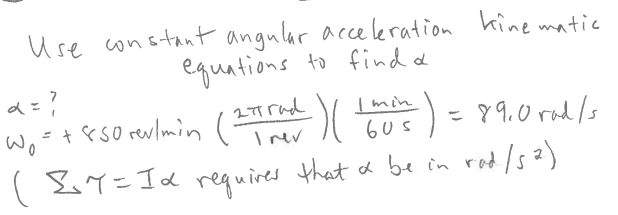 Use constant angular acceleration kinematic
equations to find α
α = ?
ω₀ = + 850 rev/min (2π rad / 1 rev)(1 min / 60 s) = 89.0 rad/s
( Σ τ = Iα requires that α be in rad/s²)